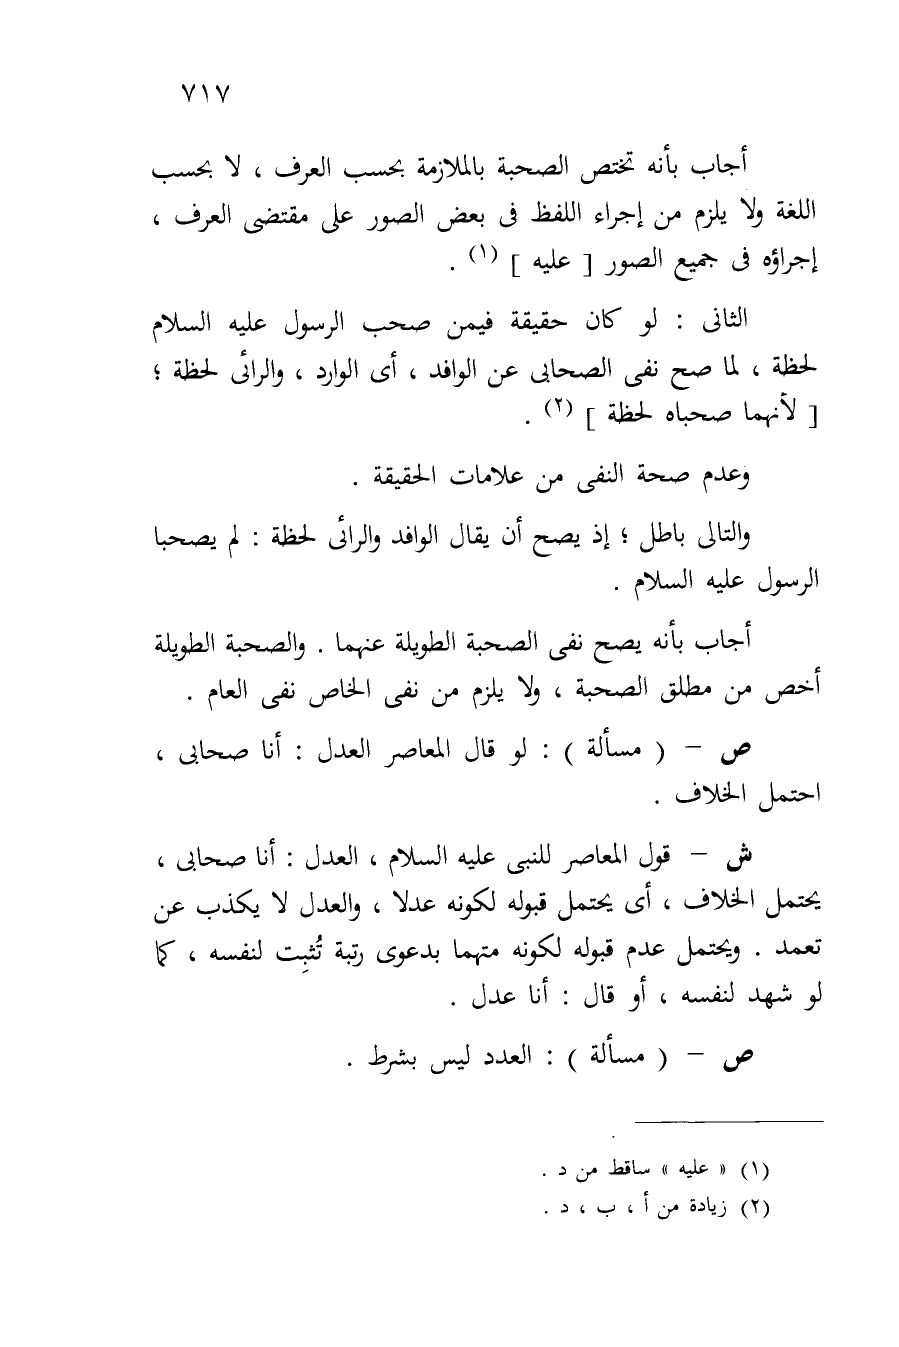 ٧١٧
أجاب بأنه تختص الصحبة بالملازمة بحسب العرف ، لا بحسب
اللغة ولا يلزم من إجراء اللفظ فى بعض الصور على مقتضى العرف ،
إجراؤه فى جميع الصور [ عليه ] (١) .
الثانى : لو كان حقيقة فيمن صحب الرسول عليه السلام
لحظة ، لما صح نفى الصحابى عن الوافد ، أى الوارد ، والرائى لحظة ؛
[ لأنهما صحباه لحظة ] (٢) .
وعدم صحة النفى من علامات الحقيقة .
والتالى باطل ؛ إذ يصح أن يقال الوافد والرائى لحظة : لم يصحبا
الرسول عليه السلام .
أجاب بأنه يصح نفى الصحبة الطويلة عنهما . والصحبة الطويلة
أخص من مطلق الصحبة ، ولا يلزم من نفى الخاص نفى العام .
ص – ( مسألة ) : لو قال المعاصر العدل : أنا صحابى ،
احتمل الخلاف .
ش – قول المعاصر للنبى عليه السلام ، العدل : أنا صحابى ،
يحتمل الخلاف ، أى يحتمل قبوله لكونه عدلا ، والعدل لا يكذب عن
تعمد . ويحتمل عدم قبوله لكونه متهما بدعوى رتبة تُثبِت لنفسه ، كما
لو شهد لنفسه ، أو قال : أنا عدل .
ص – ( مسألة ) : العدد ليس بشرط .
(١) « عليه » ساقط من د .
(٢) زيادة من أ ، ب ، د .